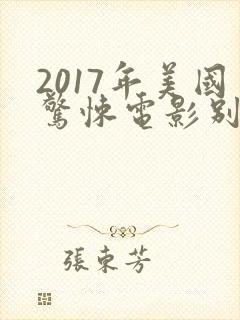 2017年美國
驚悚電影別
張東芳